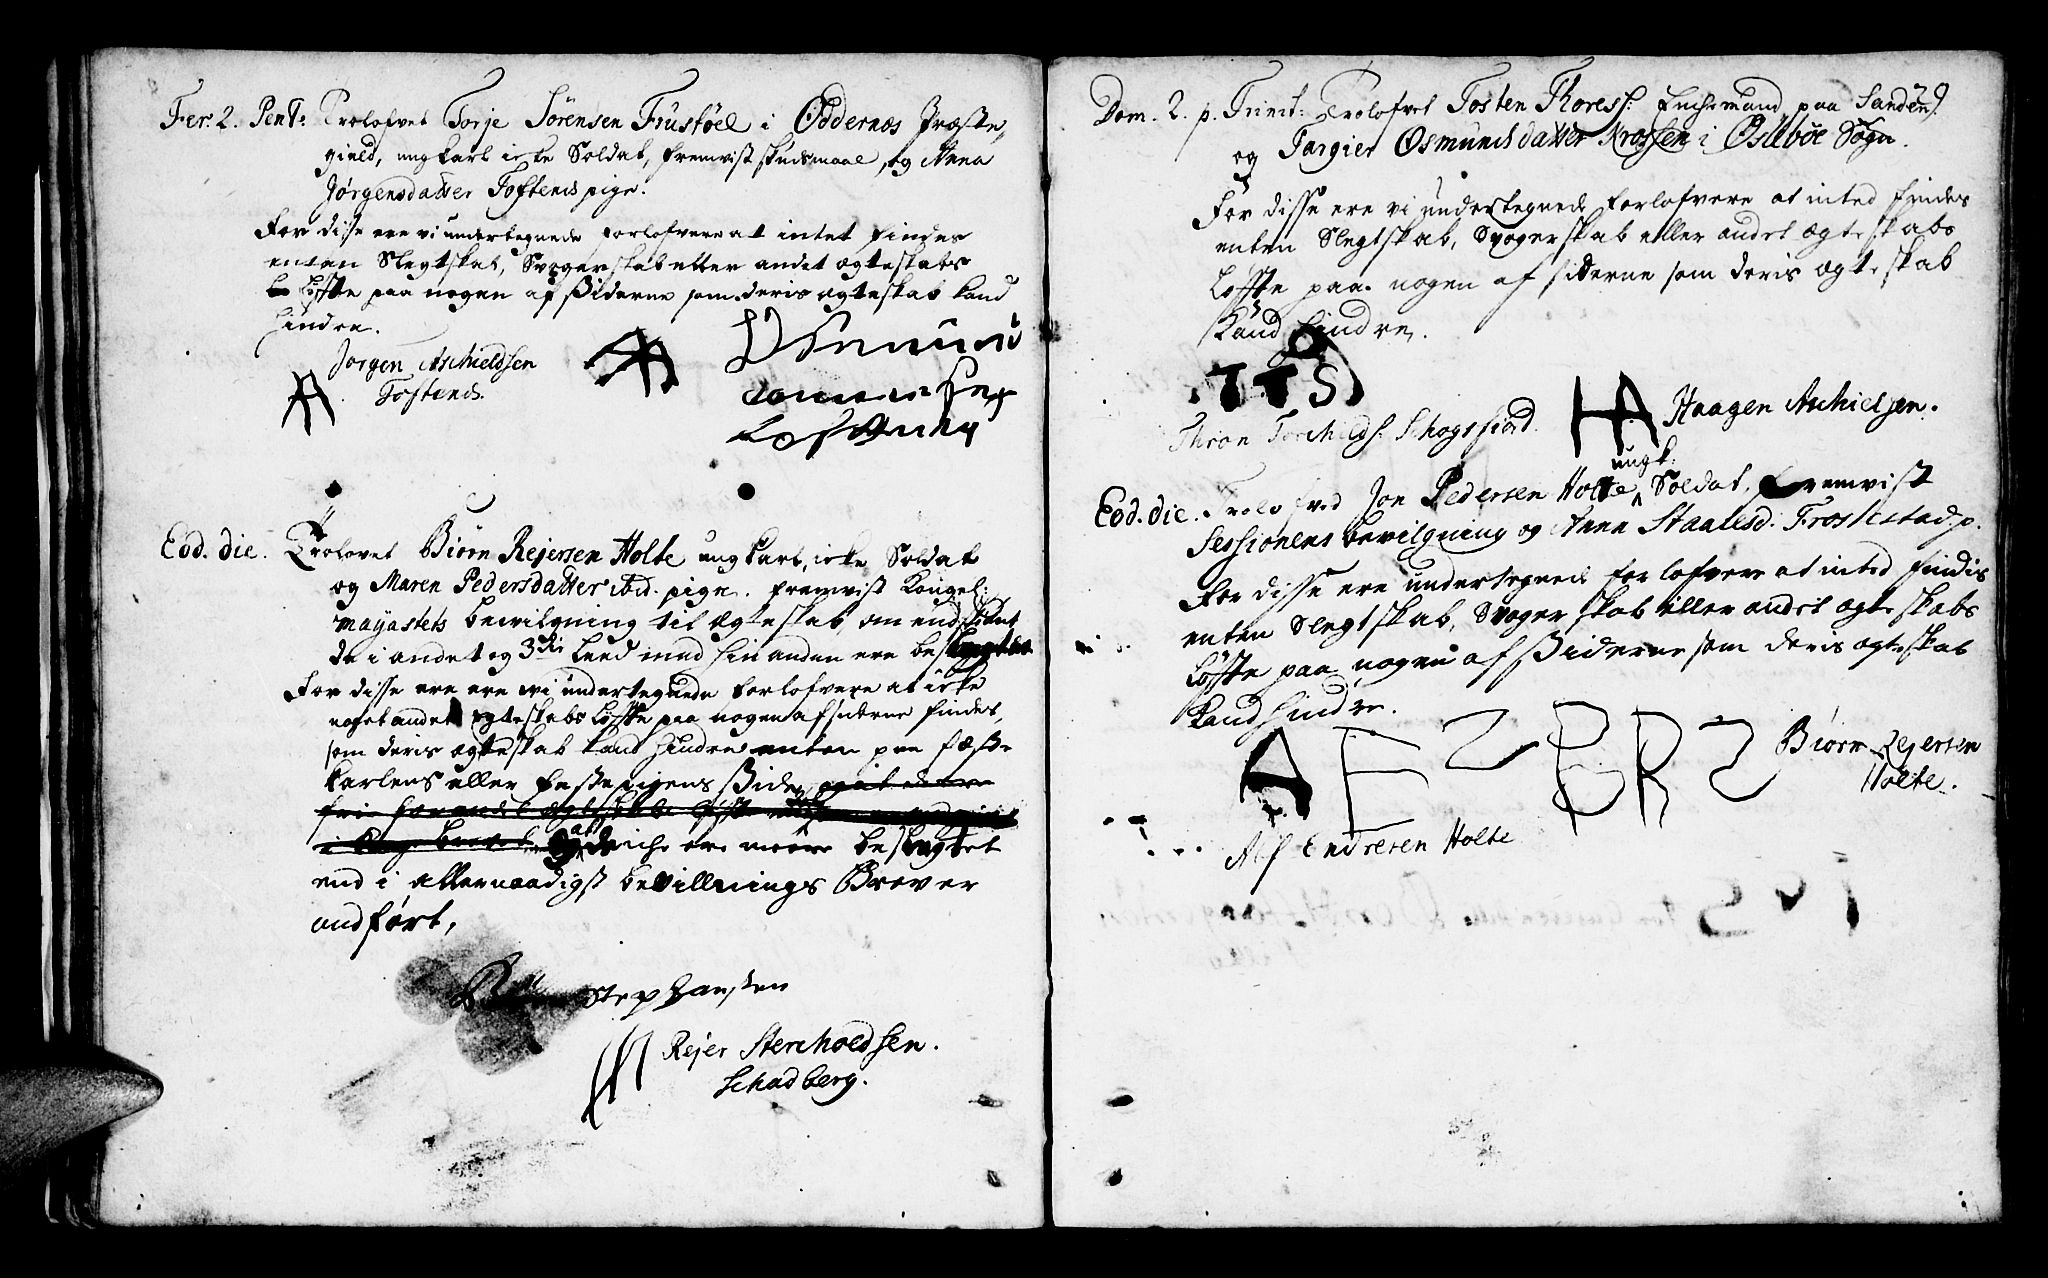 Fer: 2. Pent: Trolofvet Torje Sörensen Frustöel i Oddernæs Præste-
gield, ungkarl icke Soldat, fremvist skudsmaal, og Anna
Jörgensdatter Toftenes pige.
For disse ere vi undertegnede forlofvere at intet findes
enten Slegtskab, Svogerskab eller andet ægteskabs
Löffte paa nogen af Siderne som deris ægteskab kand
hindre.
Jorgen Aschieldsen
Toftenes.
Eod. die. Trolovet Biörn Rejersen Holte ungkarl, icke Soldat
og Maren Pedersdatter ibid. pige. fremvist Kongel:
mayastets bewilgning til ægteskab, om endskiönt
de i andet og 3die Leed med hinanden ere beslegtet
For disse ere ere wi undertegnede forlofvere at icke
noget andet ægteskabs Löffte paa nogen af siderne findes,
som deris ægteskab kand hindre enten paa fæste
karlens eller festepigens Side
at de iche ere meere beslegtet
end i allernaadigst bevillnings Brever
andfört,
Stephansen
Rejer Sterchoedsen.
Schadberg.
29
Dom. 2. p. Trinit: Trolofvet Tosten Thoress: Enchemand paa Sanden
og Targier Osmundsdatter Krossen i Ösleböe Sogn.
For disse ere vi undertegnede forlofvere at inted findes
enten Slegtskab, Svogerskab eller andet ægteskabs
Löffte paa nogen af siderne som deris ægteskab
Kand hindre.
TTS HA Haagen Aschielsen.
Thron Torchilds:
ungk:
Eod. die. Trolofved Jon Pedersen Holte Soldat, fremvist
Sessionens bevilgning og Anna Staalesd. Frostestad p.
For disse ere undertegnede forlofvere at inted findis
enten Slegtskab, Svogerskab eller andet ægteskabs
Löffte paa nogen af Siderne som deris ægteskab
Kand hindre.
AES BRS Biörn Rejersen
Holte.
Alf Endresen Holte